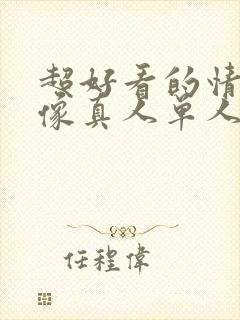 超好看的情
像真人单人
任程偉